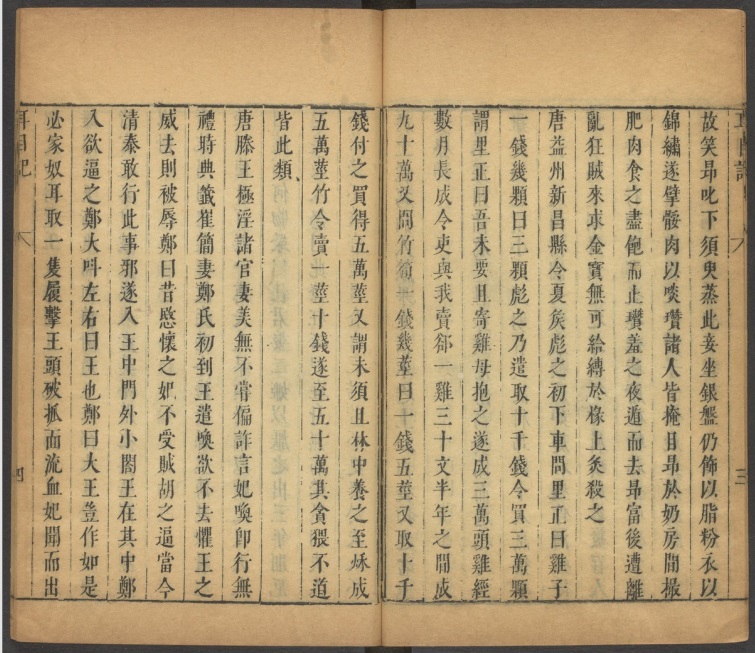 耳目記
三
故笑昂叱下須臾蒸此妾坐銀盤仍飾以脂粉衣以
錦繡遂擘骽肉以啖瓚諸人皆掩目昂於奶房間撮
肥肉食之盡飽而止瓚羞之夜遁而去昂富後遭離
亂狂賊來求金寳無可給縛於椽上炙殺之
唐益州新昌縣令夏矦彪之初下車問里正曰雞子
一錢幾顆曰三顆彪之乃遣取十千錢令買三萬顆
謂里正曰吾未要且寄雞母抱之遂成三萬頭雞經
數月長成令吏與我賣郤一雞三十文半年之間成
九十萬又問竹筍一錢幾莖曰一錢五莖又取十千
錢付之買得五萬莖又謂未須且林中養之至秌成
五萬莖竹令賣一莖十錢遂至五十萬其貪猥不道
皆此類
唐滕王極淫諸官妻美無不嘗偏詐言妃喚卽行無
禮時典籤崔簡妻鄭氏初到王遣喚欲不去懼王之
威去則被辱鄭曰昔愍懷之妃不受賊胡之逼當今
清泰敢行此事邪遂入王中門外小閤王在其中鄭
入欲逼之鄭大呌左右曰王也鄭曰大王豈作如是
必家奴耳取一隻履擊王頭破抓面流血妃聞而出
耳目記
四